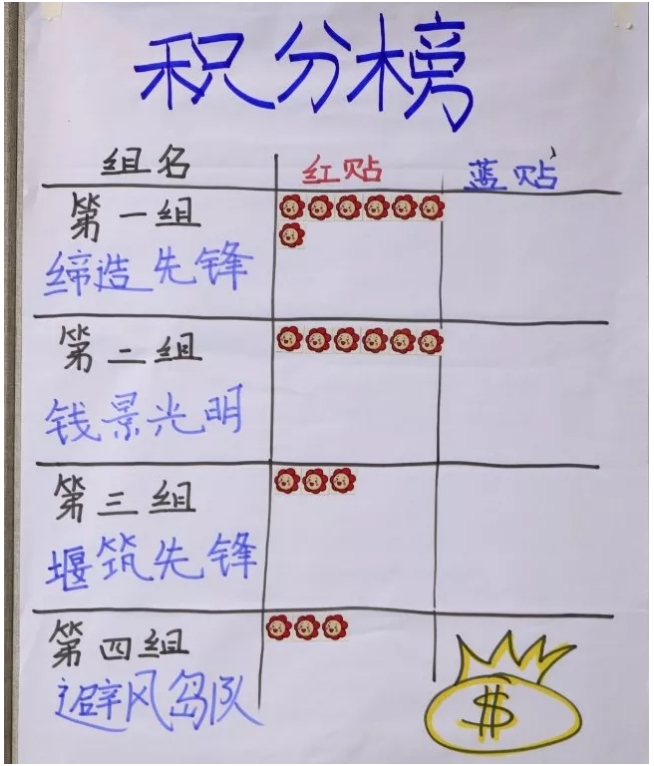 积分榜
组名 红贴 蓝贴
第一组
缔造先锋
第二组
钱景光明
第三组
堰筑先锋
第四组
避风岛队
$